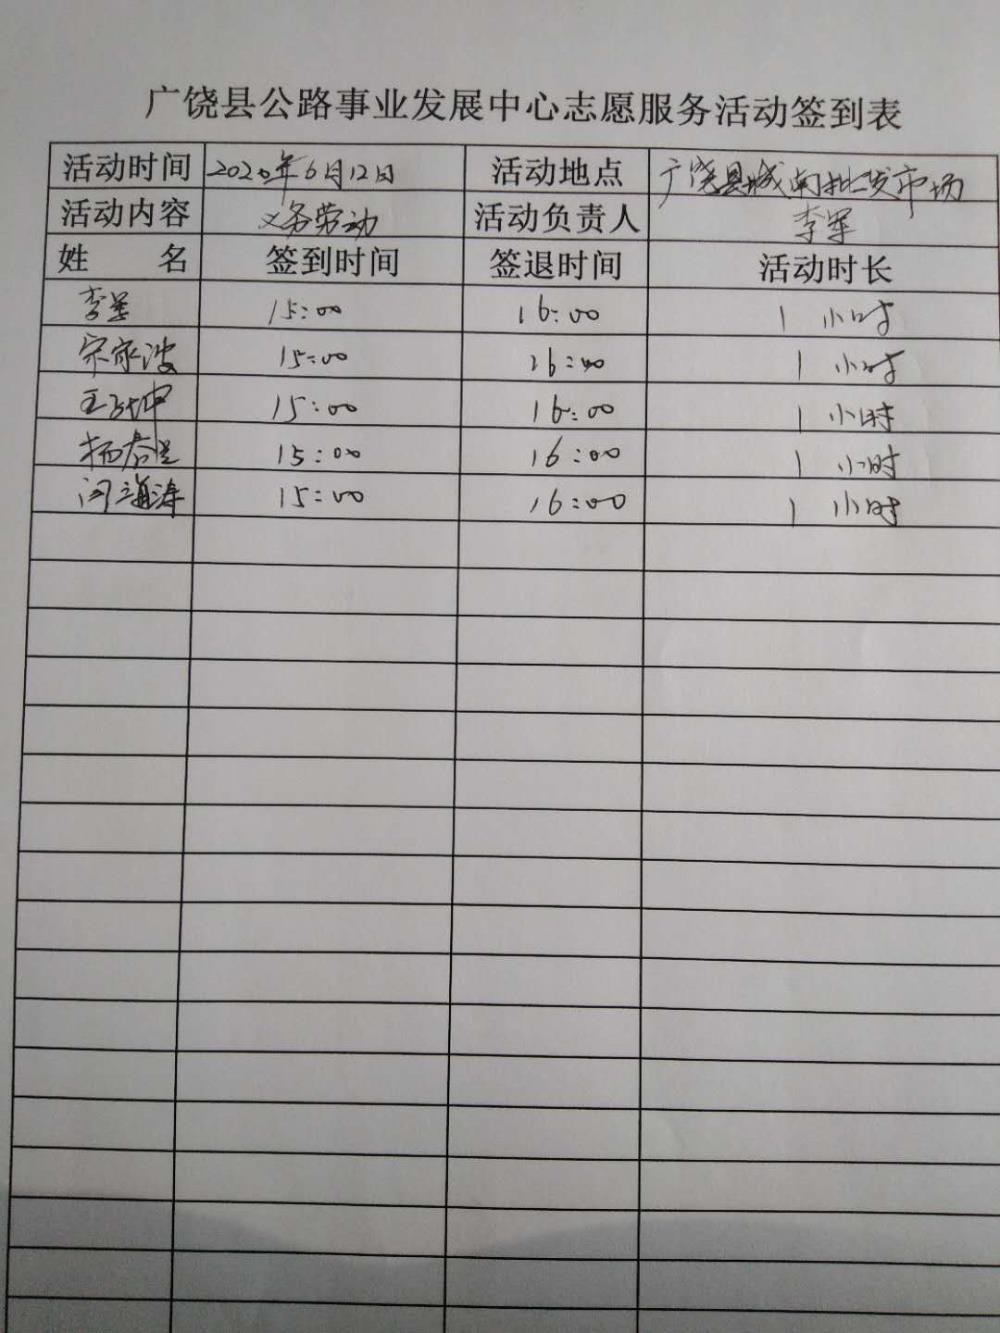 广饶县公路事业发展中心志愿服务活动签到表
活动时间 2020年6月12日 活动地点 广饶县城南批发市场
活动内容 义务劳动 活动负责人 李军
姓 名 签到时间 签退时间 活动时长
李军 15:00 16:00 1 小时
宋家波 15:00 16:00 1 小时
15:00 16:00 1 小时
15:00 16:00 1 小时
闫海涛 15:00 16:00 1 小时